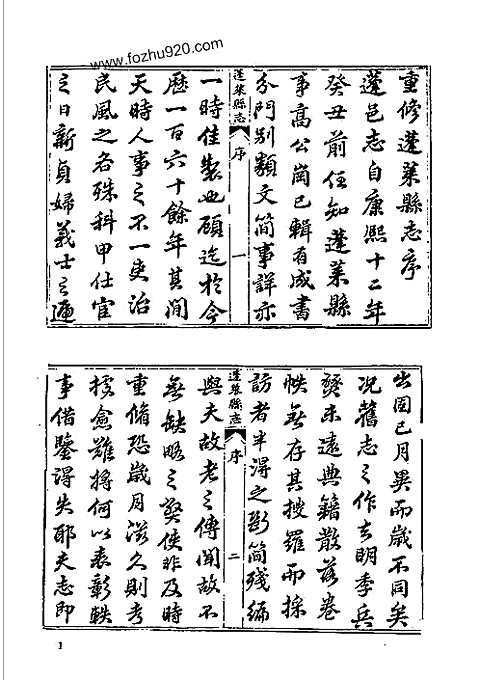 www.fozhu920.com
重修蓬萊縣志序
蓬邑志自康熙十二年
癸丑前任知蓬萊縣
事高公崗已輯有成書
分門別類文簡事詳亦
蓬萊縣志
序
一
一時佳製也顧迄於今
歷一百六十餘年其間
天時人事之不一吏治
民風之各殊科甲仕宦
之日新貞婦義士之迭
出固已月異而歲不同矣
況舊志之作去明季兵
燹未遠典籍散落卷
帙無存其搜羅而採
訪者半得之斷簡殘編
蓬萊縣志
序
二
與夫故老之傳聞故不
無缺略之獘使非及時
重脩恐歲月滋久則考
據愈難將何以表彰軼
事借鑒得失耶夫志即
1